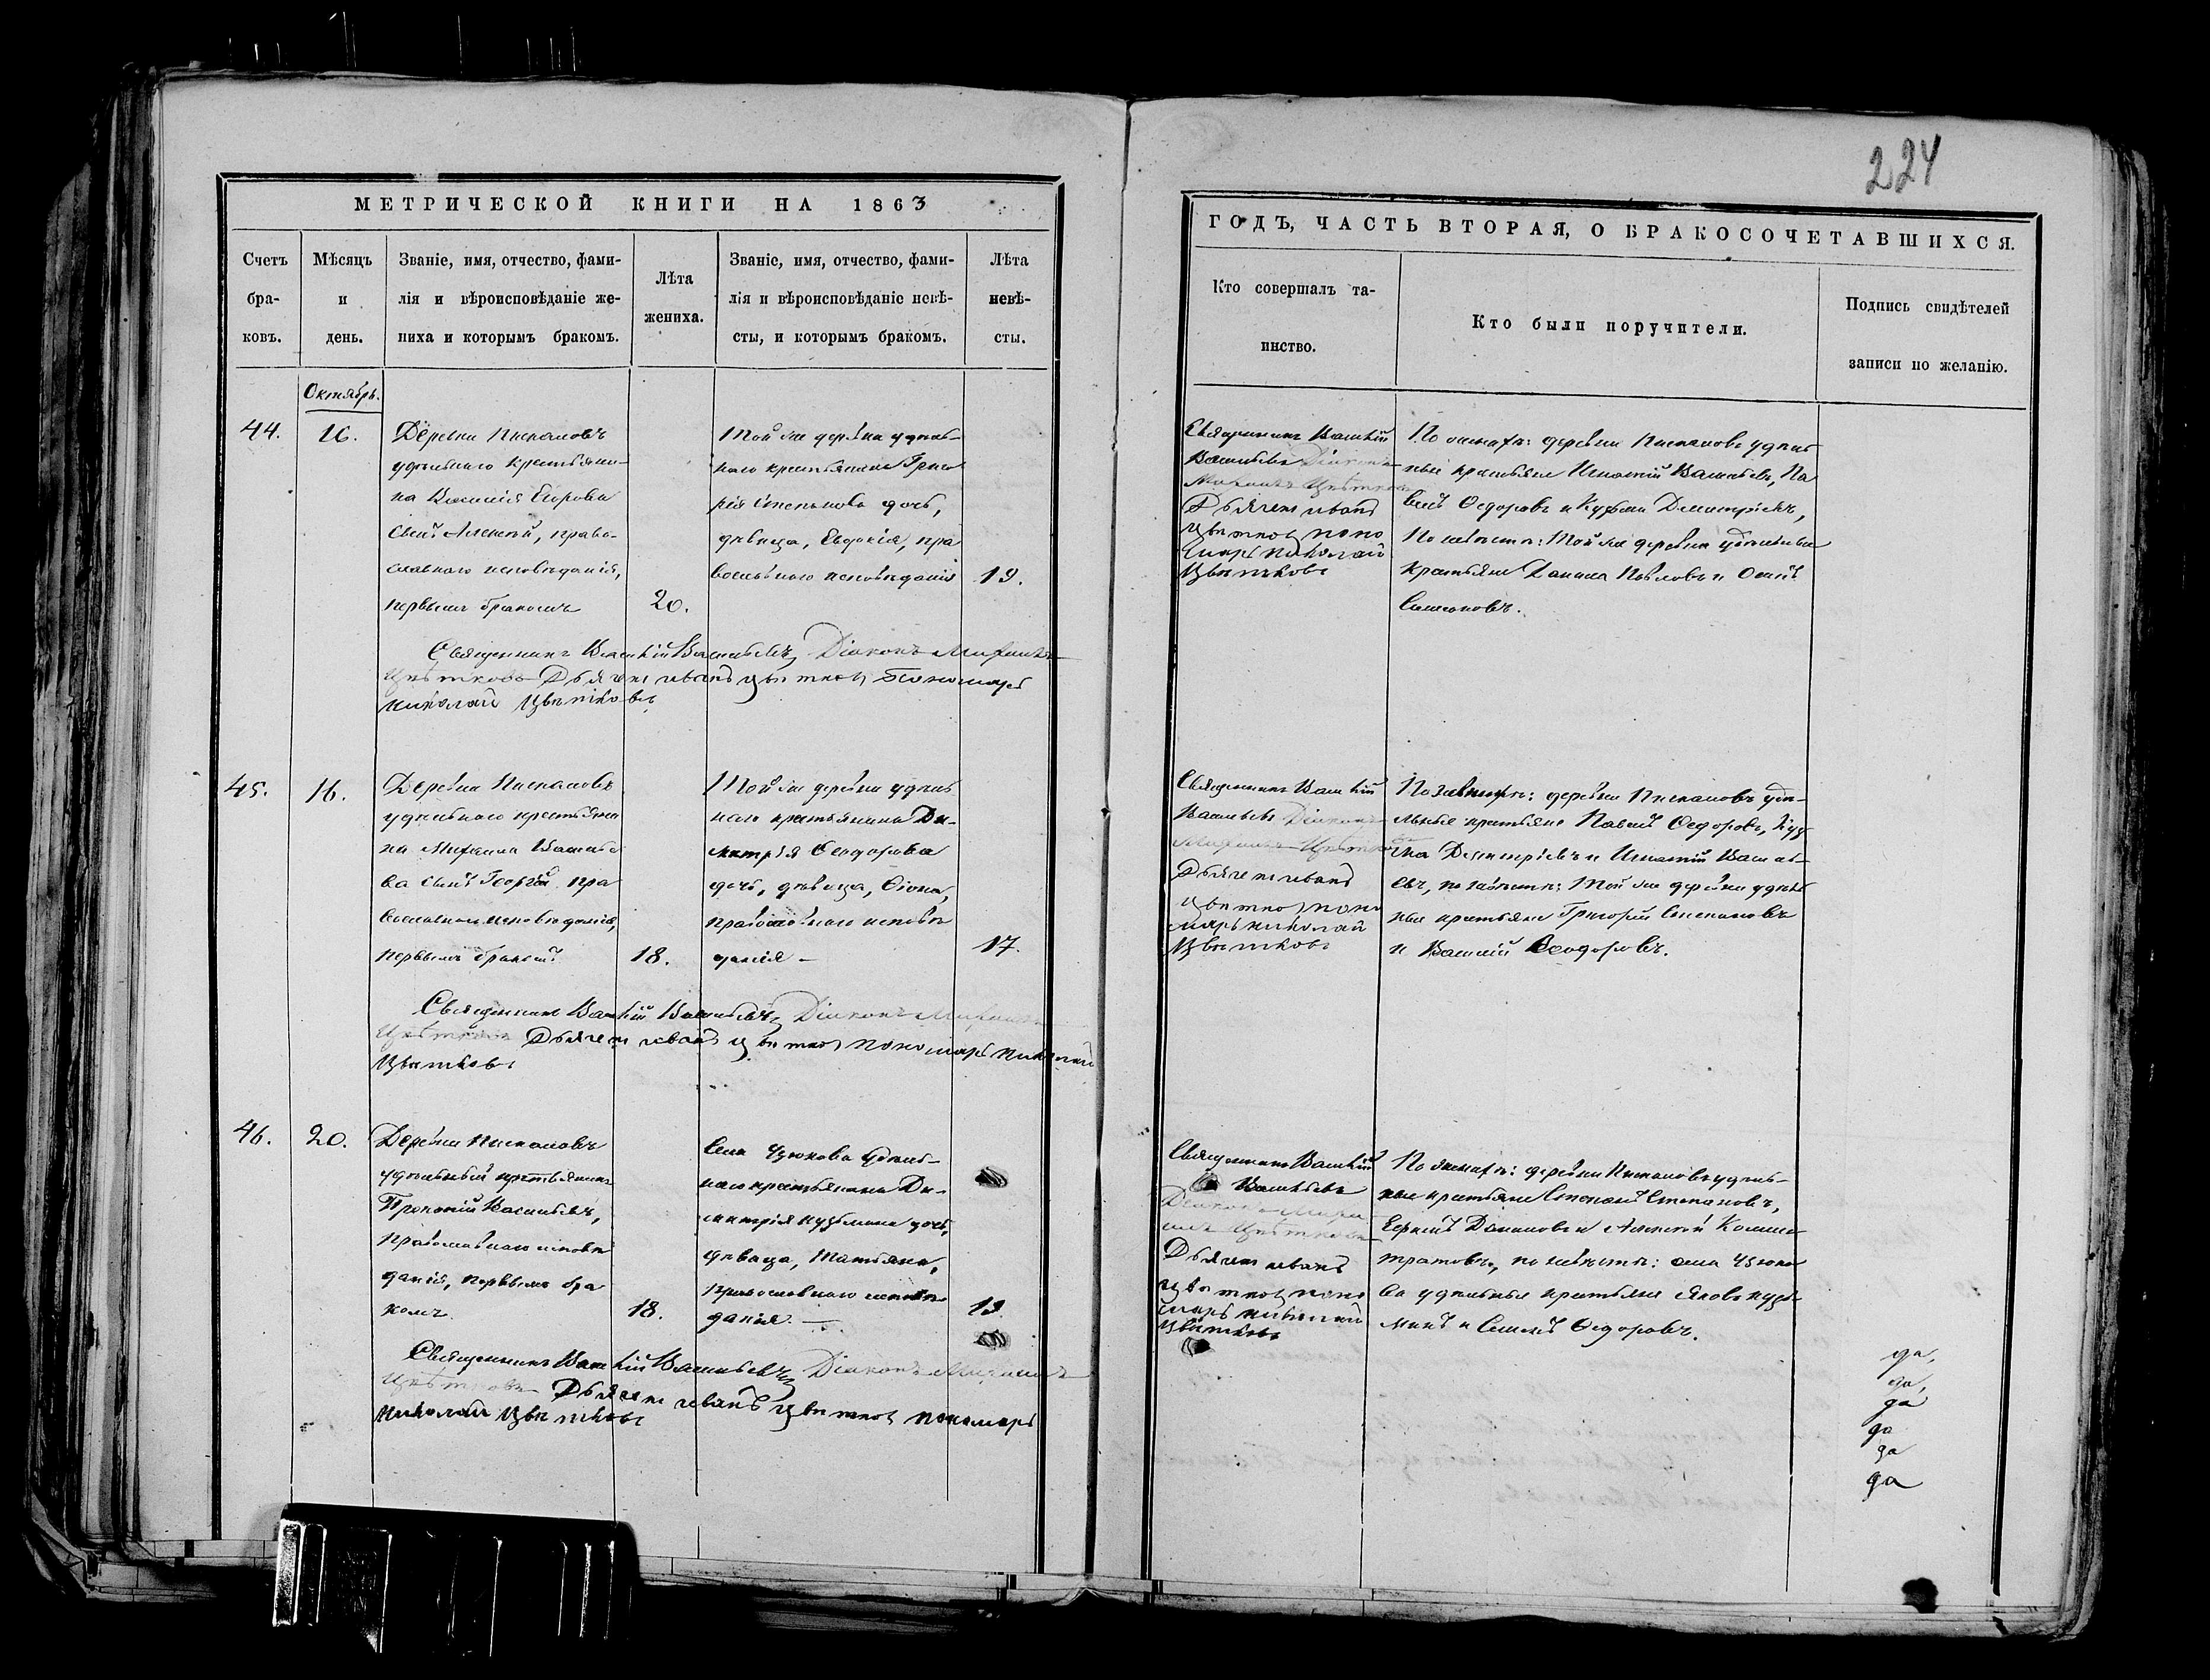 224
МЕТРИЧЕСКОЙ КНИГИ НА 1863
Счетъ бра-ковъ.
Мѣсяцъ и день.
Званіе, имя, отчество, фами-
лія и вѣроисповѣданіе же-
ниха и которымъ бракомъ.
Лѣта
жениха.
Званіе, имя, отчество, фами-
лія и вѣроисповѣданіе невѣ-
сты, и которымъ бракомъ.
Лѣта
невѣ-
сты.
Октябрь.
44.
16.
Деревни
удѣльнаго крестьяни-
на Василія Егорова
сынъ Алексѣй, право-
славнаго исповѣданія,
первымъ бракомъ
20.
Той же деревни удѣль-
наго крестьянина Григо
рія Степанова дочь,
дѣвица, Евдокія, пра
вославнаго исповѣданія
19.
Священникъ Василій Васильевъ Діаконъ Михаилъ
Цвѣтковъ Дьячекъ иванъ цвѣтков Пономарь
николай Цвѣтковъ
45.
16.
Деревни
удѣльнаго крестьяни
на Михаила Василье
ва сынъ Георгій пра
вославнаго исповѣданія,
первымъ бракомъ
18.
Той же деревни удѣль
наго крестьянина Ди-
митрія Ѳеодорова
дочь, дѣвица,
православнаго исповѣ
данія —
17.
Священникъ Василій Васильевъ Діаконъ Михаилъ
Цвѣтковъ Дьячекъ иванъ цвѣтков пономарь николай
Цвѣтковъ
46.
20.
Деревни
удѣльный крестьянинъ
Прокопій Васильевъ,
православнаго исповѣ
данія, первымъ бра
комъ
18.
Села Чуюкова удѣль-
наго крестьянина Ди-
митрія Кузьмина дочь,
дѣвица, Татьяна,
православнаго исповѣ
данія —
19.
Священникъ Василій Васильевъ Діаконъ Михаилъ
Цвѣтковъ Дьячекъ иванъ цвѣтков пономарь
николай Цвѣтковъ
ГОДЪ, ЧАСТЬ ВТОРАЯ, О БРАКОСОЧЕТАВШИХСЯ.
Кто совершалъ та-
инство.
Кто были поручители.
Подпись свидѣтелей
записи по желанію.
Священникъ Василій
Васильевъ Діаконъ
Михаилъ Цвѣтковъ
Дьячекъ иванъ
цвѣтков поно
марь николай
Цвѣтковъ
По женихѣ: деревни удѣль
ные крестьяне Игнатій Васильевъ, Па
велъ Ѳедоровъ и Кузьма Димитріевъ,
По невѣстѣ: Той же деревни удѣльные
крестьяне Данила Павловъ и Осипъ
Симоновъ.
Священникъ Василій
Васильевъ Діаконъ
Михаилъ Цвѣтковъ
Дьячекъ иванъ
цвѣтков поно
марь николай
Цвѣтковъ
По женихѣ: деревни удѣ-
льные крестьяне Павелъ Ѳедоровъ, Кузь
ма Димитріевъ и Игнатій Василь-
евъ, по невѣстѣ: Той же деревни удѣль
ные крестьяне Григорій Степановъ
и Василій Ѳеодоровъ.
Священникъ Василій
Васильевъ
Діаконъ Миха
илъ Цвѣтковъ
Дьячекъ иванъ
цвѣтков поно
марь николай
Цвѣтковъ
По женихѣ: деревни удѣль-
ные крестьяне Степанъ Степановъ,
Данилов и Алексѣй
по невѣстѣ: села Чуюко
ва удѣльные крестьяне Яковъ Кузь
минъ и Ѳедоровъ.
да,
да,
да
да
да
да